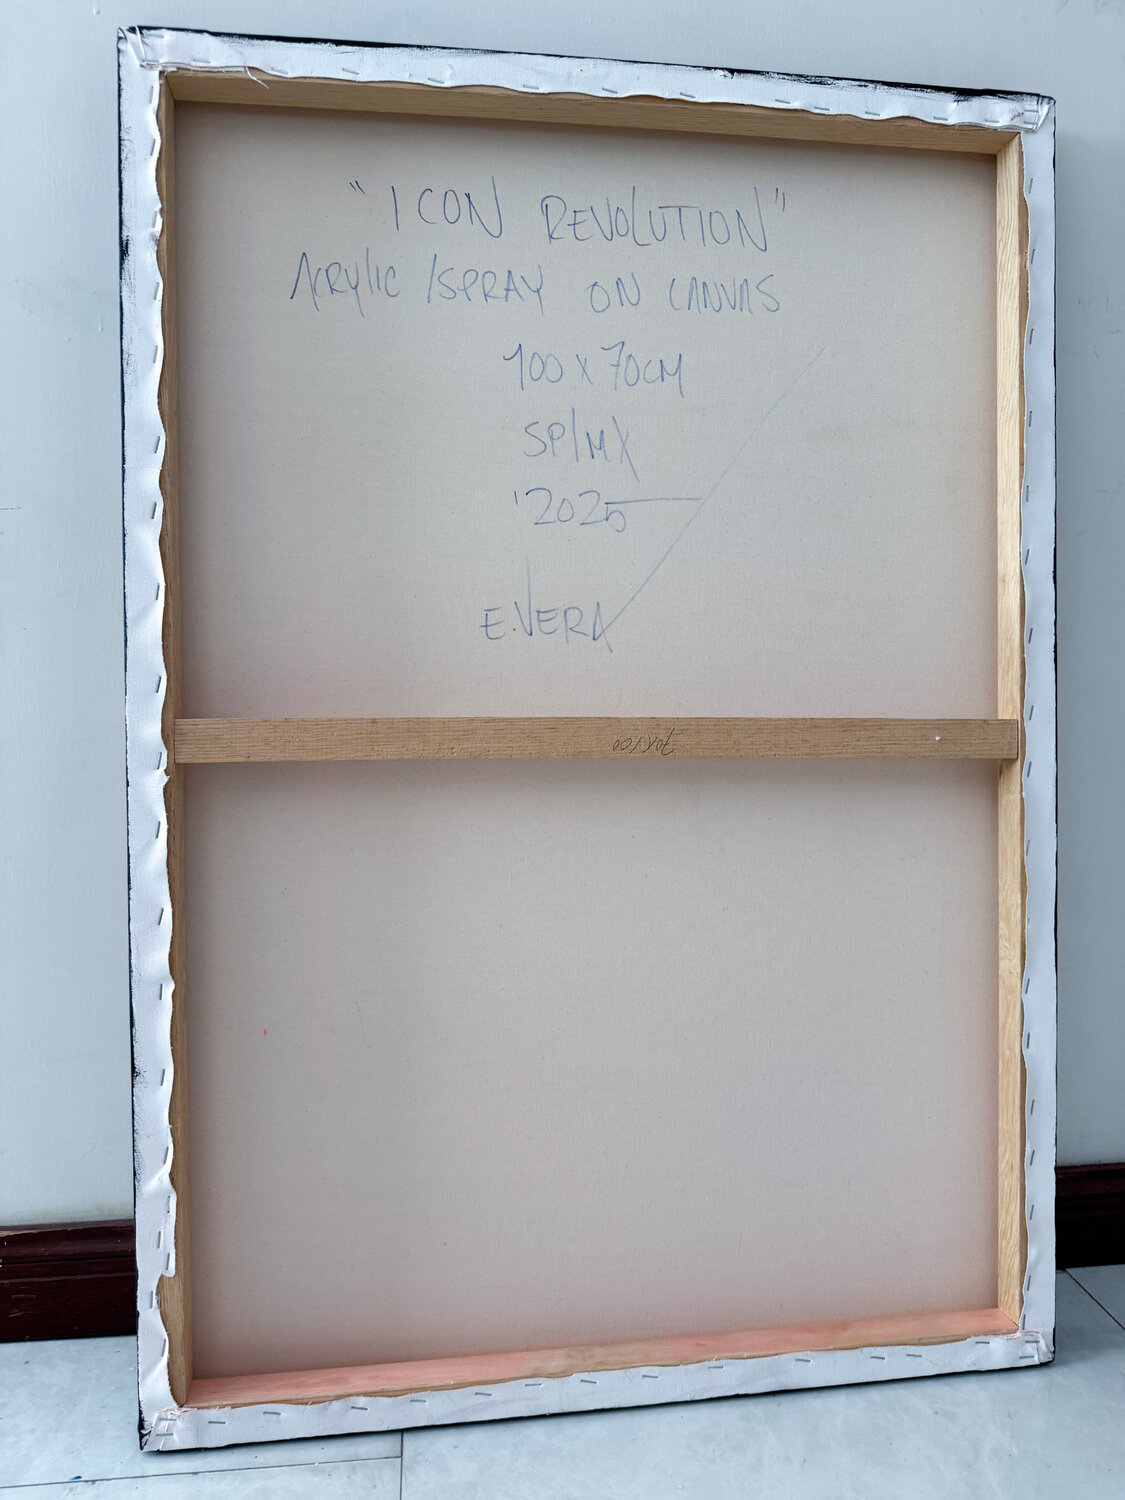 "ICON REVOLUTION"
ACRYLIC /SPRAY ON CANVAS
100 x 70CM
SP/MX
'2025
E.VERA
70x100